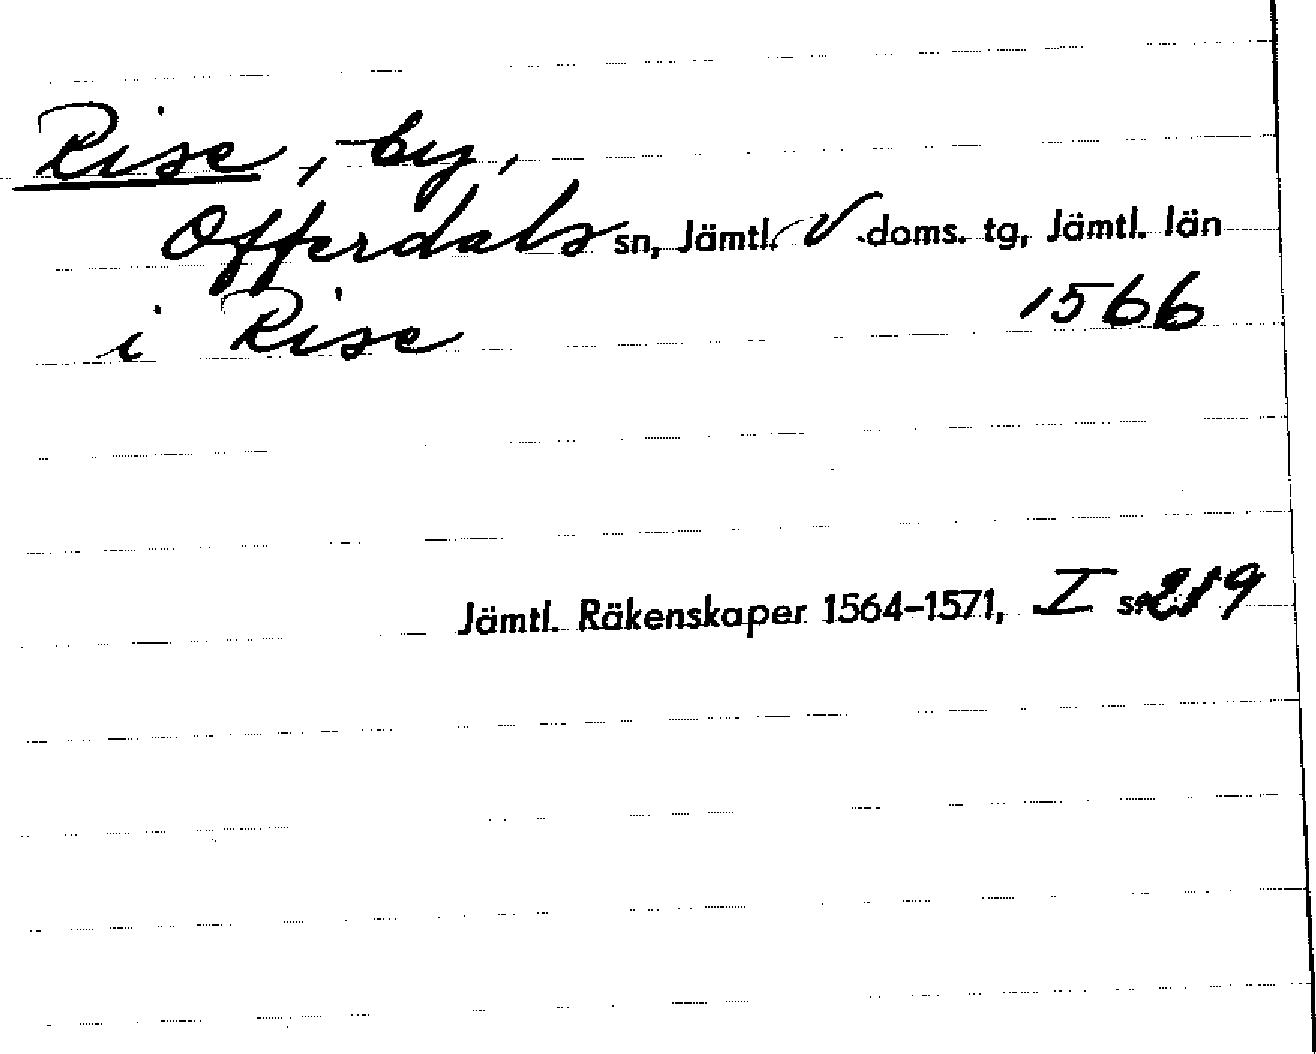 Rise, by,
Offerdals sn, Jämtl. V .doms. tg, Jämtl. län
i Rise 1566
Jämtl. Räkenskaper 1564–1571, I s. 289